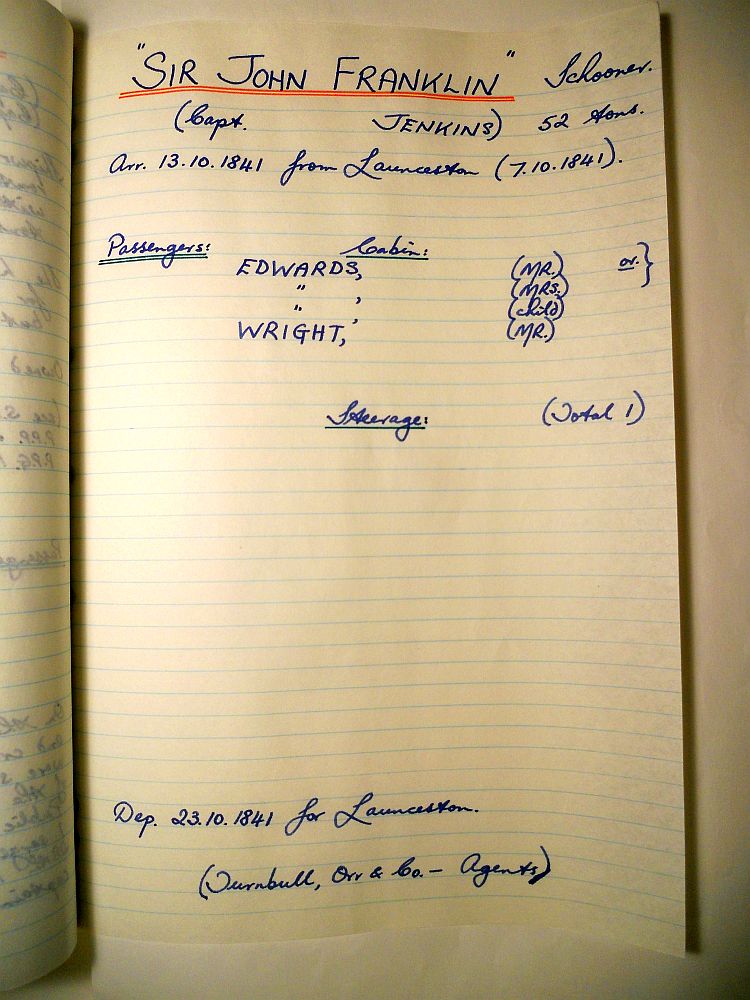 "SIR JOHN FRANKLIN" Schooner.
(Capt. JENKINS) 52 tons.
Arr. 13.10.1841 from Launceston (7.10.1841).
Passengers: Cabin:
EDWARDS, (MR.) or. }
" , (MRS.)
" , (child)
WRIGHT, (MR.)
Steerage: (Total 1)
Dep. 23.10.1841 for Launceston.
(Turnbull, Orr & Co. - Agents)